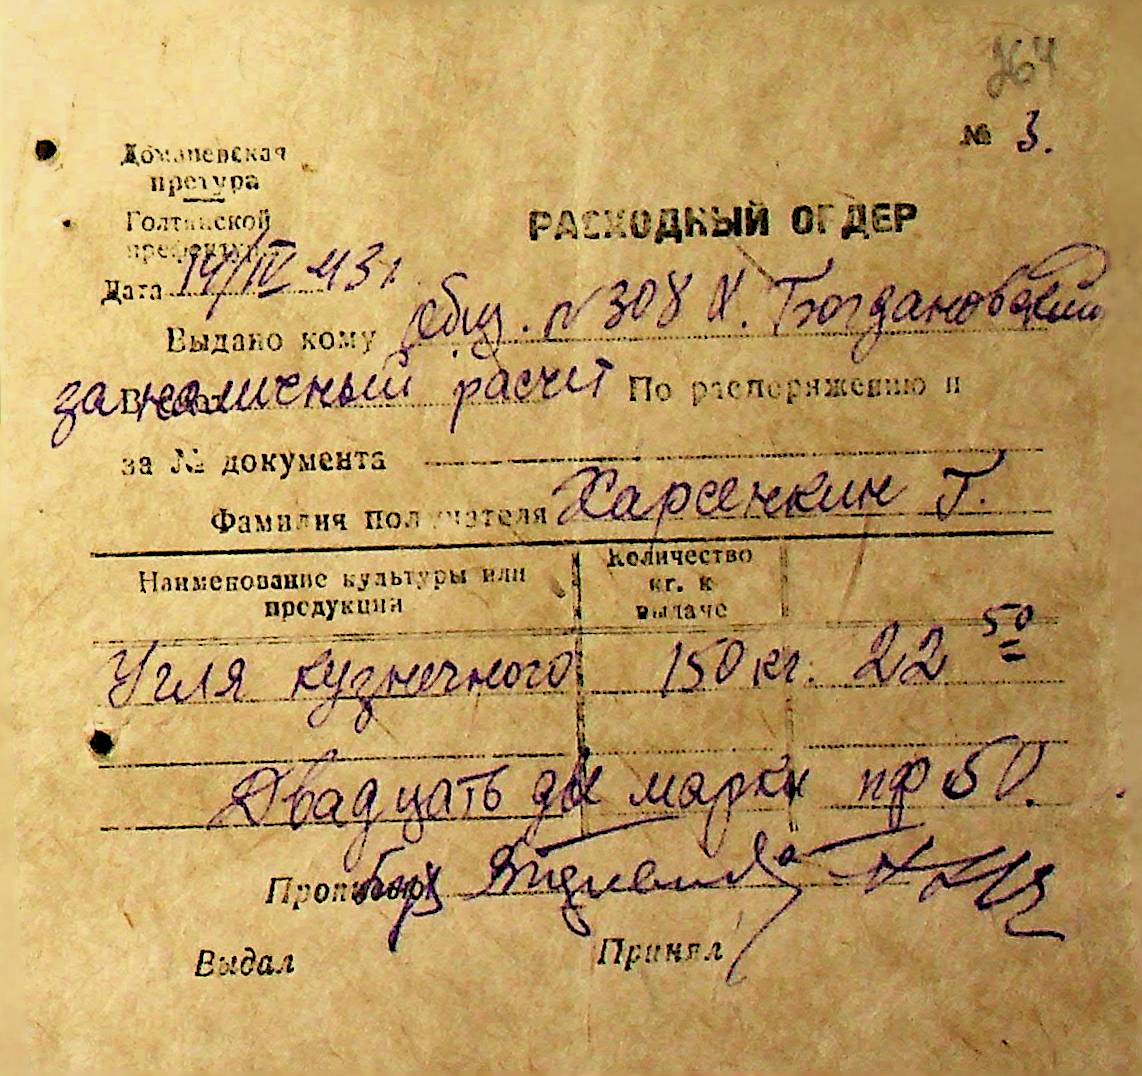 264
№ 3.
Доманевская
претура
Голтянской
префектуры
РАСХОДНЫЙ ОРДЕР
Дата 14/IV 43 г
Выдано кому общ. № 308 Х. Богдановский
за наличный расчит По распоряжению и
за № документа
Фамилия получателя Харсенкин Г.
Наименование культуры или продукции
Количество кг. к выдаче
Угля кузнечного 150 кг. 22 50
Двадцать две марки пф 50.
Прописью
Выдал Принял